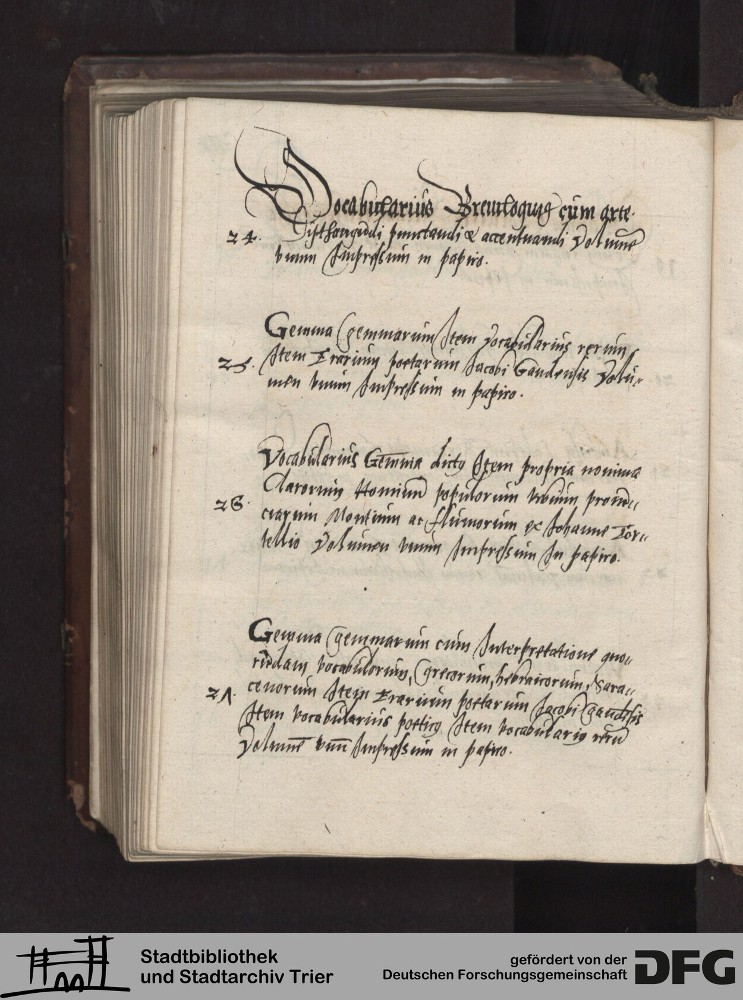 Vocabularius Breviloquus cum arte
24. Diphtongandi punctandi & accentuandi Volumē
vnum Impressum in papiro.
Gemma Gemmarum Item Vocabularius rerum
25. Item Erarium poetarum Jacobi Gaudensis Volu=
men vnum Impressum in papiro.
Vocabularius Gem̄ma dictus Item propria nomina
Clarorum Hominū populorum vrbium prouin=
26. ciarum Montium ac fluuiorum ex Johanne Tor=
tellio Volumen vnum Impressum In papiro.
Gemma Gemmarum cum Interpretatione quo=
rūdam vocabulorum, Grecorum, hebraicorum, Sara=
27. cenorum Item Erarium poetarum Jacobi Gaudēsis
Item vocabularius poeticus Item vocabularius rerū
Volumē vnū Impressum in papiro.
Stadtbibliothek
und Stadtarchiv Trier
gefördert von der
Deutschen Forschungsgemeinschaft
DFG